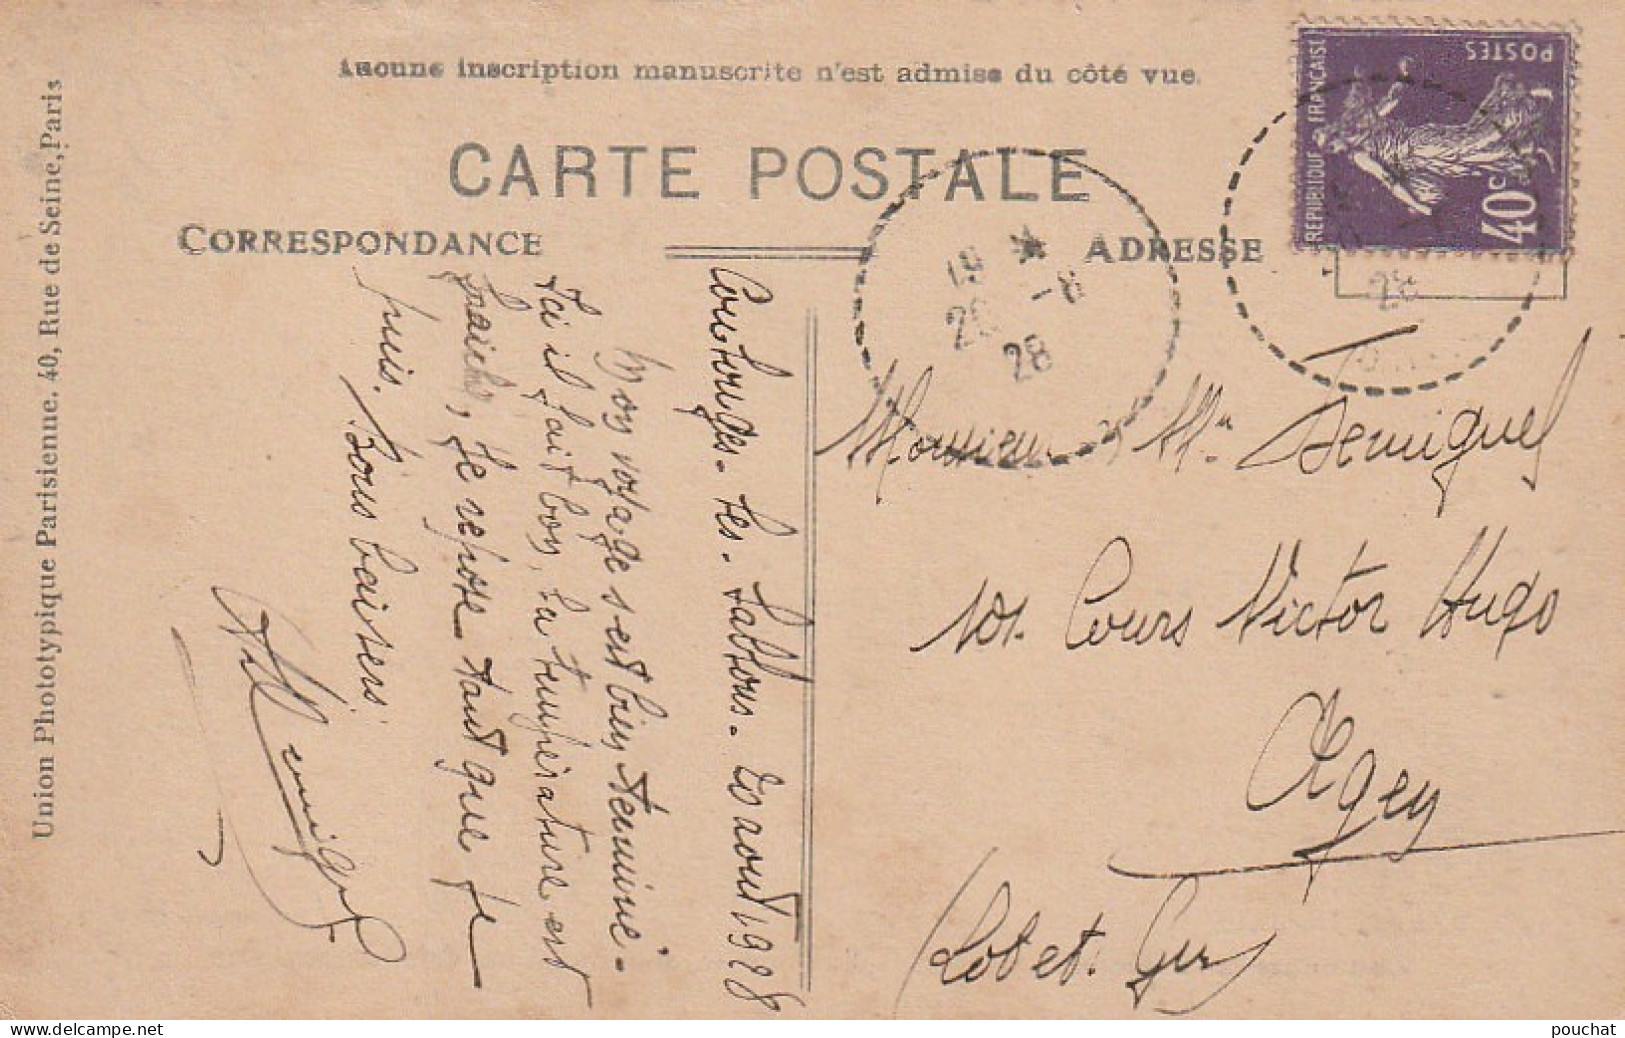 Aucune inscription manuscrite n'est admise du côté vue.
CARTE POSTALE
CORRESPONDANCE
ADRESSE
REPUBLIQUE FRANÇAISE
POSTES
40 c
19 *
20 -8
28
28
Union Phototypique Parisienne. 40, Rue de Seine, Paris
Coutouges-les-Sablons- août 1928
Mon voyage s'est bien terminé-
Ici il fait bon, la température est
fraiche, je repose tant que je
puis. Bons baisers
Monsieur Mme Demiguel
101. Cours Victor Hugo
Agen
(Lot et. Gar
www.delcampe.net
pouchat